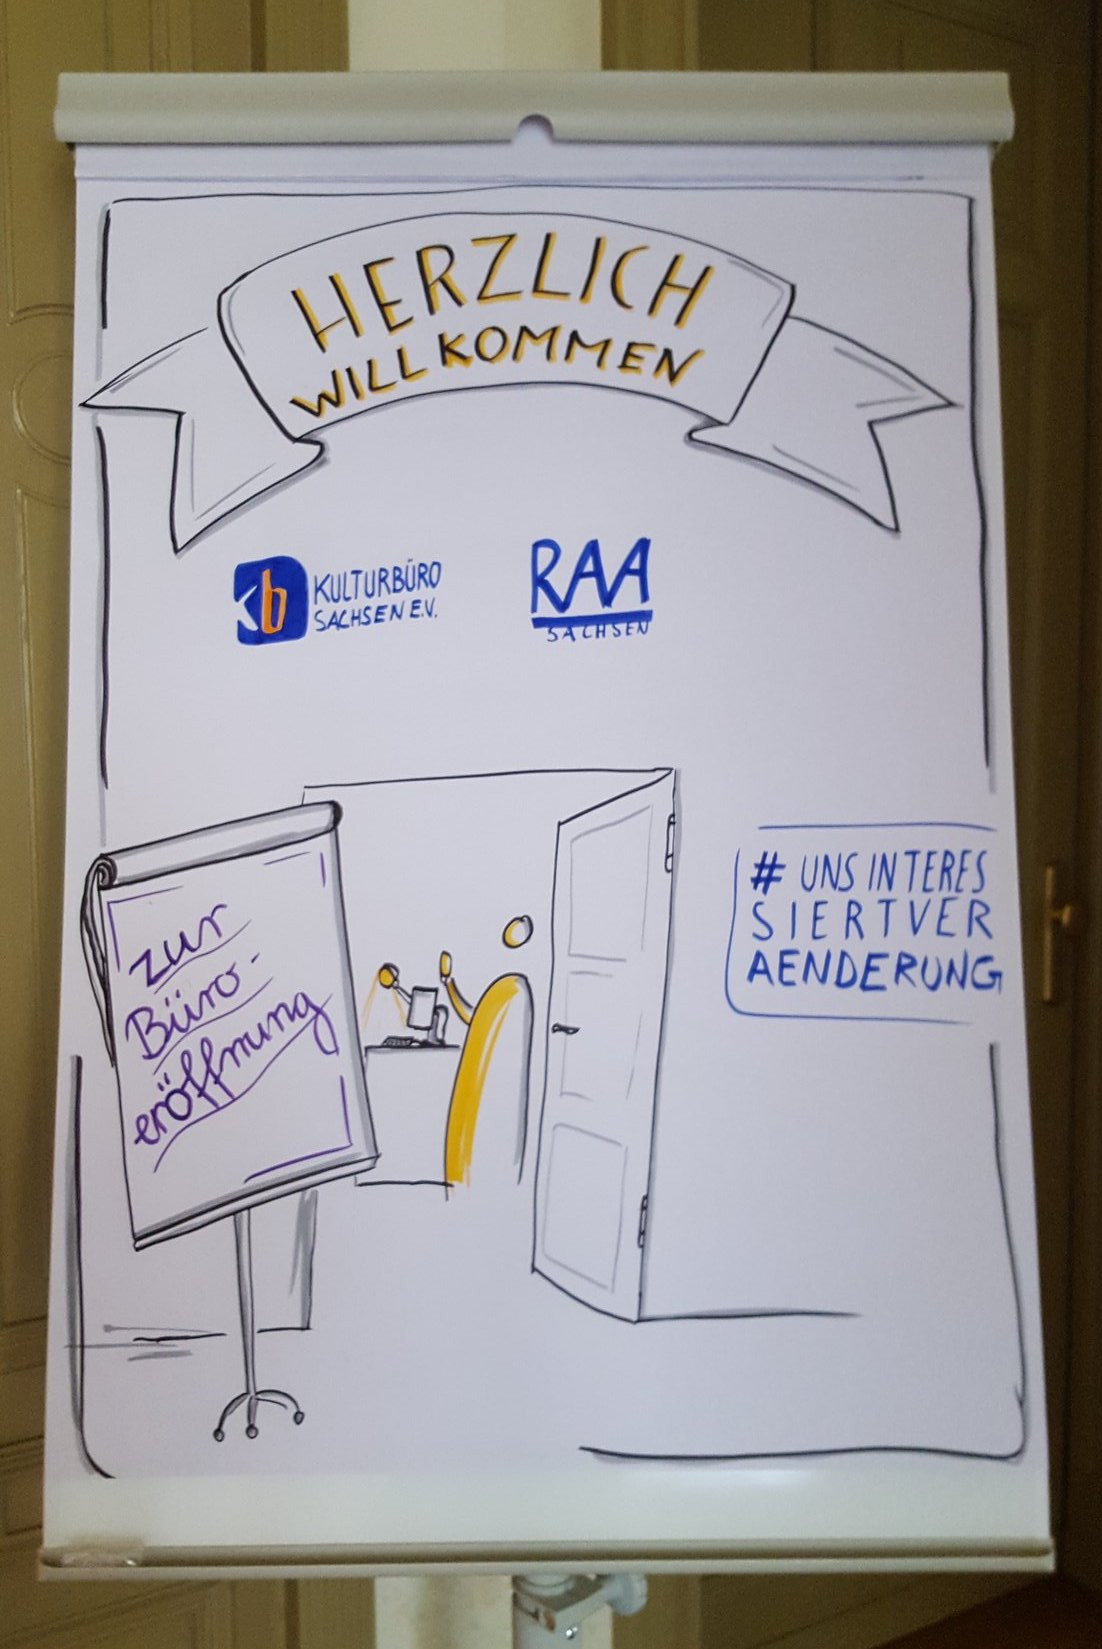 HERZLICH
WILLKOMMEN
kb KULTURBÜRO
SACHSEN E.V.
RAA
SACHSEN
zur
Büro-
eröffnung
# UNSINTERES
SIERTVER
AENDERUNG